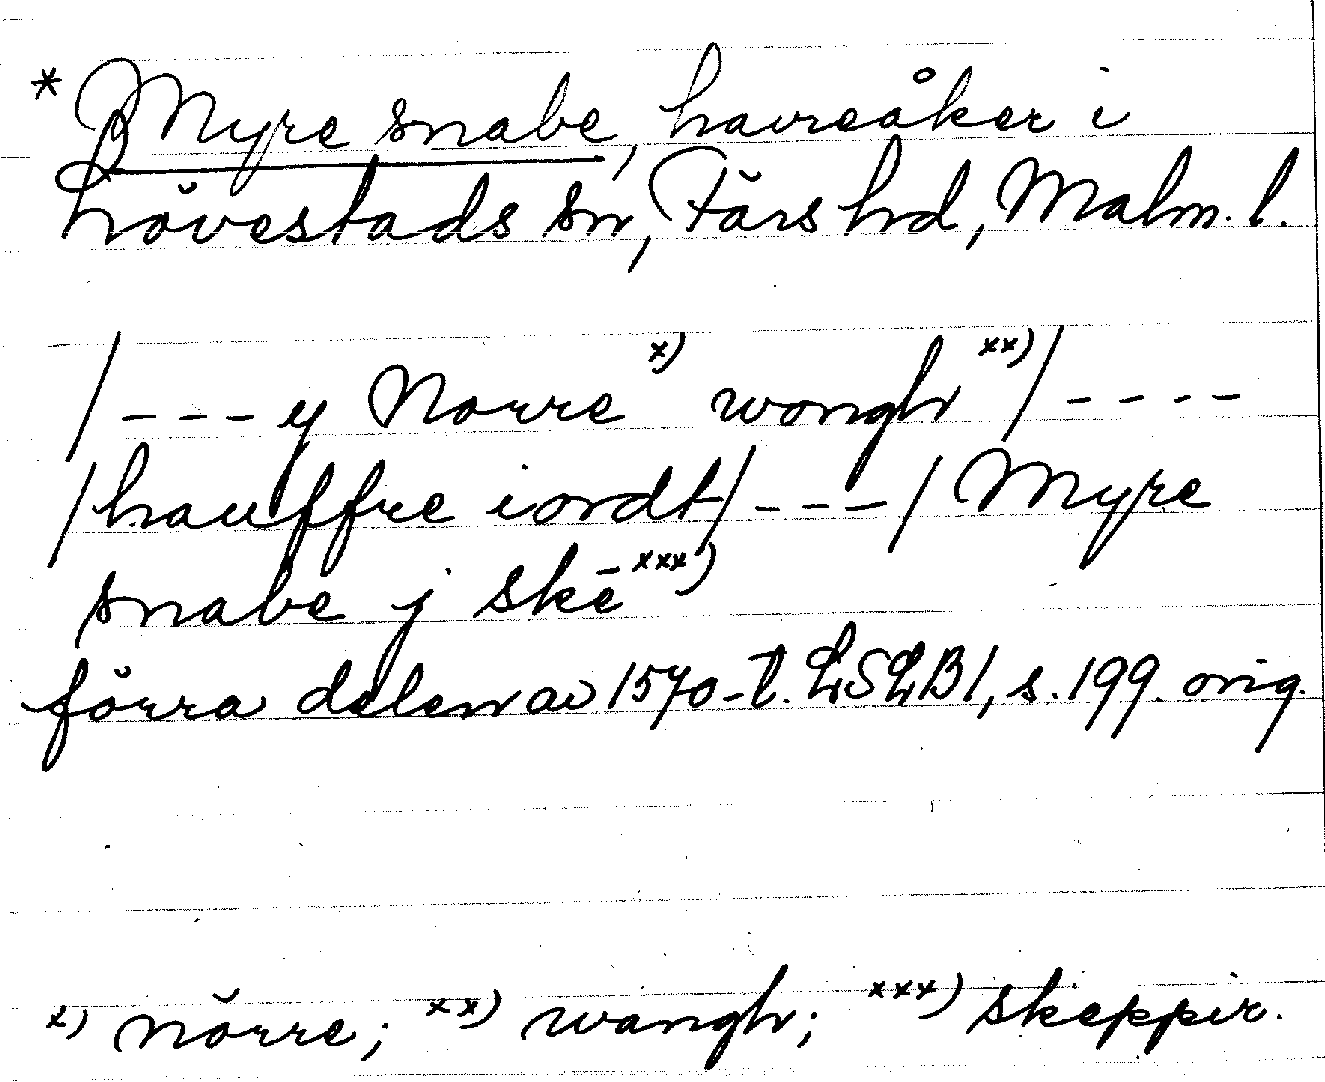 * Myre snabe, havreåker i
Lövestads sn, Färs hd, Malm. l.
/---y Norre x) wongh xx)/----
/hauffre iordt/---/Myre
snabe j skē xxx)
förra delen av 1570-t. LSLB1, s. 199. orig.
x) nörre; xx) wangh; xxx) skeppir.